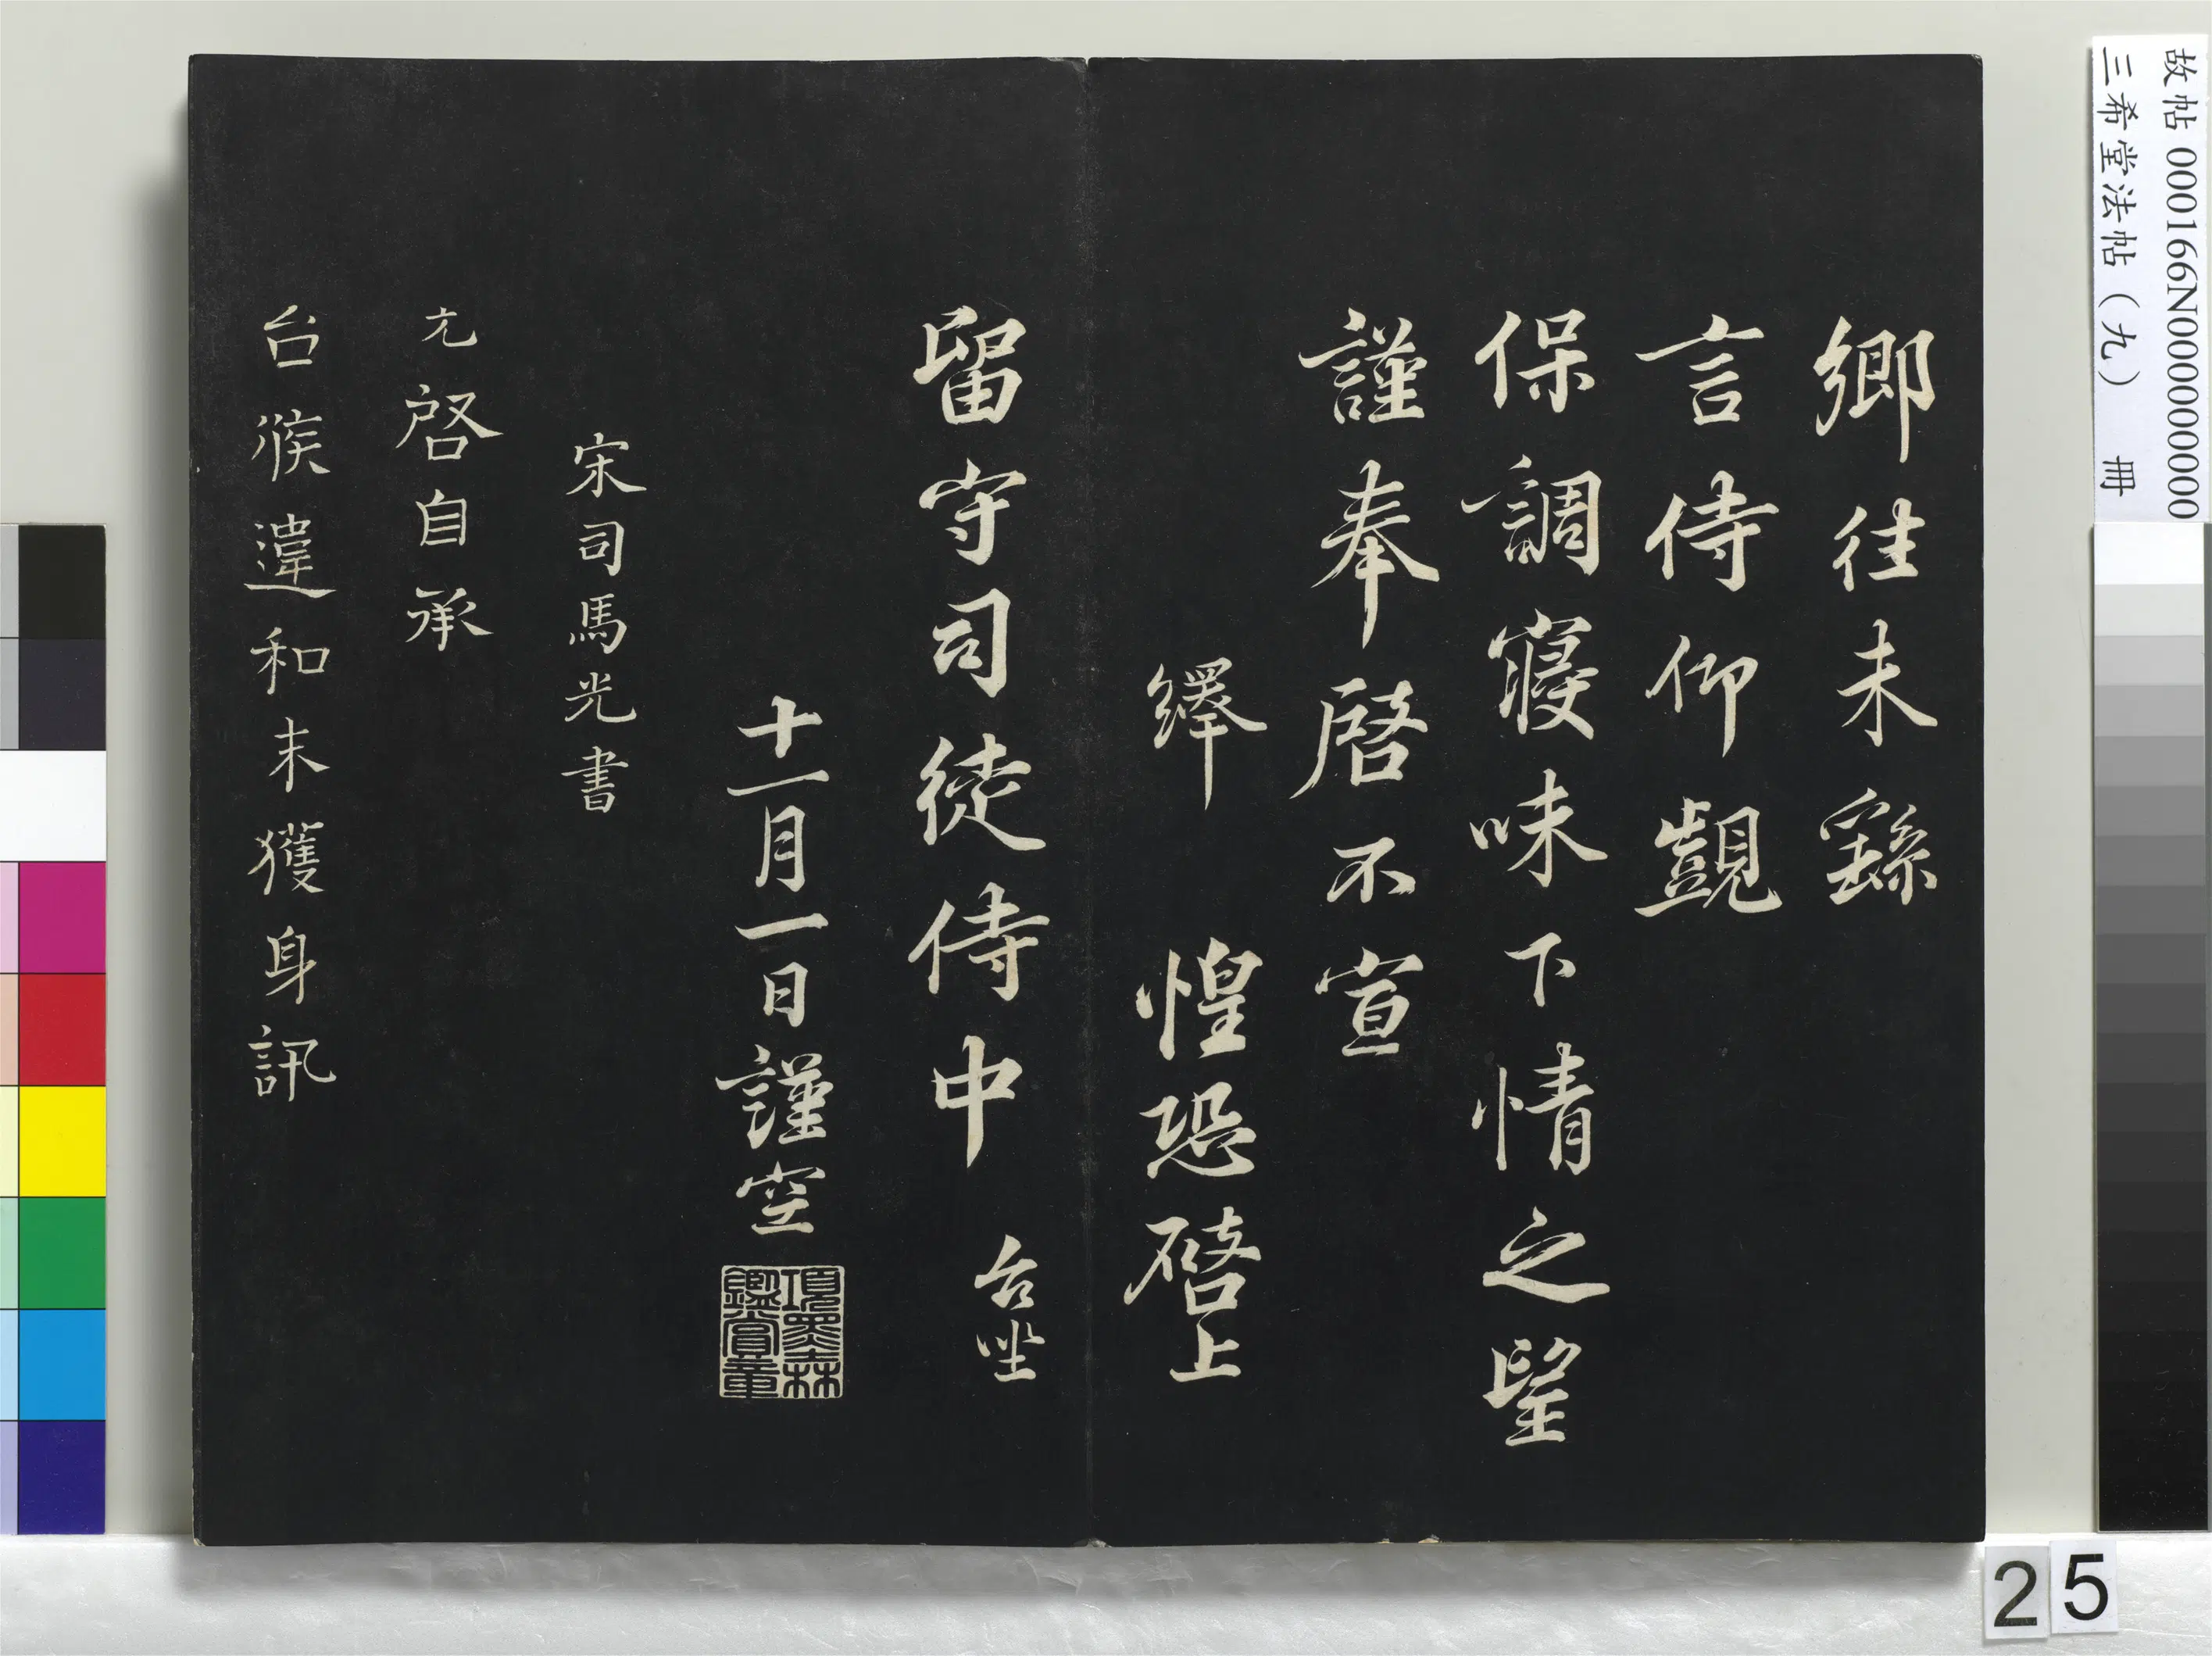 鄉往未繇
言侍仰觊
保調寢味下情之望
謹奉啓不宣
繹 惶恐啓上
留守司徒侍中 台坐
十一月一日謹空
項墨林鑑賞章
宋司馬光書
光啓自承
台候違和未獲身訊
故帖 000166N000000000
三希堂法帖（九） 冊
25